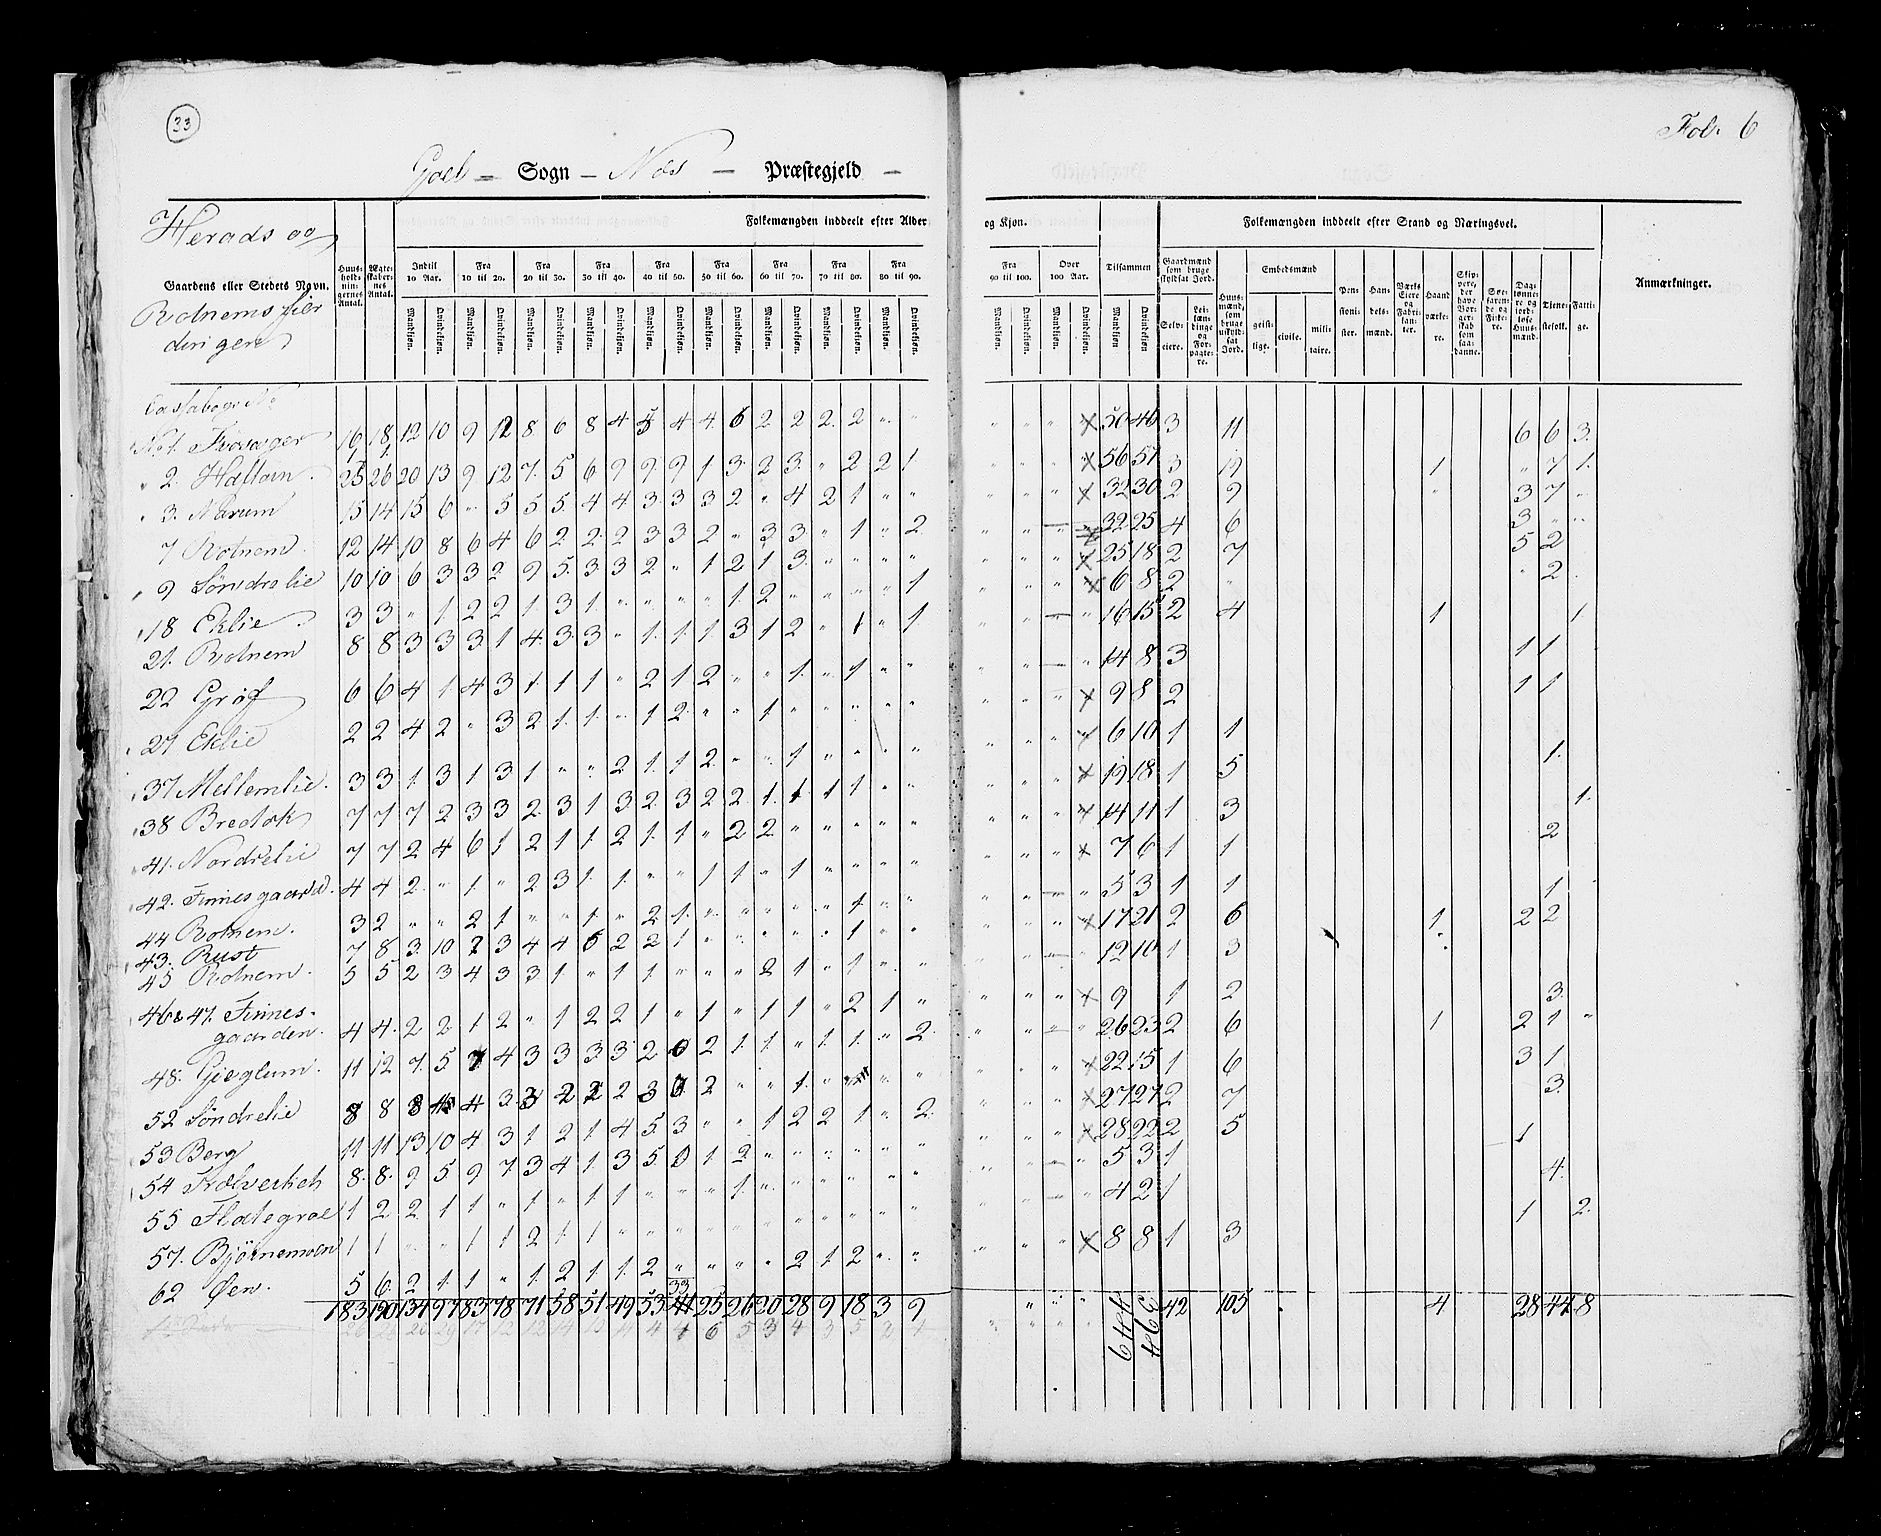 33
Fol. 6
Goel – Sogn – Næs – Præstegjeld –
Herads og
Rotnems fier
dingen
Gaardens eller Stedets Navn.
Huusholdningernes Antal.
Ægteskabernes Antal.
Folkemængden inddeelt efter Alder og Kjøn.
Indtil 10 Aar.
Fra 10 til 20.
Fra 20 til 30.
Fra 30 til 40.
Fra 40 til 50.
Fra 50 til 60.
Fra 60 til 70.
Fra 70 til 80.
Fra 80 til 90.
Fra 90 til 100.
Over 100 Aar.
Tilsammen
Mandkjøn. Qvindekjøn.
Folkemængden inddeelt efter Stand og Næringsvei.
Gaardmænd som bruge skyldsat Jord.
Selveiere.
Leilændinge og Forpagtere.
Huusmænd, som bruge uskyldsat Jord.
Embedsmænd
geistlige. civile. militaire.
Pensionister.
Handelsmænd.
Værks Eiere og Fabrikanter.
Haandværkere.
Skippere, der have Borgerskab som saadanne.
Søefarende og Fiskere.
Dagлønnere og jordløse Huusmænd.
Tienestefolk.
Fattige.
Anmærkninger.
No 1. Trøager 16 18 12 10 9 12 8 6 8 4 5 4 4 6 2 2 2 2 " " 50 46 3 11 6 6 3
2. Haltam 25 26 20 13 9 12 7 5 6 9 9 9 1 3 2 3 " 2 2 1 56 57 3 19 1 " 7 1
3. Narum 15 14 15 6 " 5 5 5 4 4 3 3 3 2 " 4 2 1 " " 32 30 2 9 3 7
7 Rotnem 12 14 10 8 6 4 6 2 2 2 3 3 2 " 3 3 " 1 " 2 32 25 4 6 3 " "
9 Søndrelie 10 10 6 3 3 2 9 5 3 3 2 " 1 2 1 3 " " " " 25 18 2 7 5 2
18 Eklie 3 3 " 1 2 2 1 3 1 " " " " 1 2 " " " " 1 6 8 2 " 2
21. Rotnem 8 8 3 3 3 1 4 3 3 " 1 1 1 3 1 2 " 1 " 1 16 15 2 4 1 1
22 Grøf 6 6 4 1 4 3 1 1 1 " 2 1 2 " " 1 " 1 " " 14 8 3 1 1
27 Eklie 2 2 4 2 " 3 2 1 1 " 1 2 " " 1 " " " " " 9 8 2 1 1
37 Mellemlie 3 3 1 3 1 3 1 " " 2 1 1 2 " " 1 " " " " 6 10 1 1 1
38 Bredok 7 7 7 2 3 3 2 3 1 3 2 3 2 2 1 1 1 1 " " 19 18 1 5
41. Nordrelie 7 7 2 4 6 1 2 1 1 2 1 1 " 2 2 " " " " " 14 11 1 3 1
42. Finnesgaard 4 4 2 " 1 " 2 3 1 1 " " 1 1 " 1 " " " " 7 6 1 1 2
44 Rotnem 3 2 " " 2 1 " " 1 " 2 1 " " " " " 1 " " 5 3 1 1 1
43. Rust 7 8 3 10 7 3 4 4 6 2 2 1 " " " " " 1 " " 17 21 2 6 1 2 2
45 Rotnem 5 5 2 3 4 3 3 1 " 1 1 " " " 2 1 " 1 " " 12 10 1 3
46 & 47. Finnes-
gaarden 4 4 2 2 1 2 " 1 2 2 1 " 1 " 1 1 " 2 1 " 9 1 2 3
48. Gjæglum 11 12 7 5 7 4 3 3 3 3 2 6 2 1 1 " 1 1 " 2 26 23 2 6 1 2 1 "
52 Søndrelie 8 8 22 15 1 6 3 1
53 Berg 11 11 13 10 4 3 1 2 1 4 5 3 " " 1 2 2 1 " 2 27 27 2 7 3
54 Trolvestich 8 8 9 5 9 7 3 4 1 3 5 1 2 " " " " " " 28 22 2 5 1
55 Flategrae 1 2 2 1 1 " 1 " 1 1 " " " 1 " " " " " " 5 3 1 4
57. Bjørnemoen 1 1 " " 1 1 2 1 1 " " " " " " " " " " " 4 2 1 1 2
62 Øen 5 6 2 1 1 " 1 2 1 1 2 " " " " 2 1 2 " " 8 8 1 3
183 190 134 97 83 78 71 58 51 49 53 33 25 26 20 28 9 18 3 9 449 394 42 105 4 28 44 8